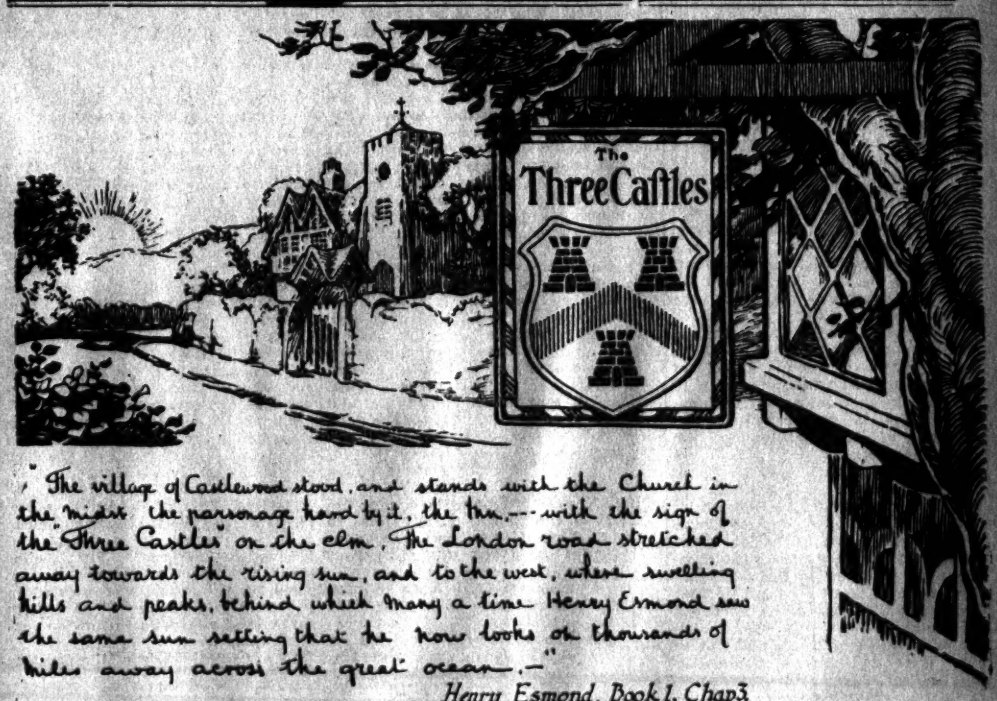 The
Three Castles
"The village of Castlewood stood, and stands with the Church in
the midst the parsonage hard by it, the Inn,--- with the sign of
the "Three Castles" on the elm, The London road stretched
away towards the rising sun, and to the west, where swelling
hills and peaks, behind which many a time Henry Esmond saw
the same sun setting that he now looks on thousands of
miles away across the great ocean.—"
Henry Esmond, Book 1, Chap3.